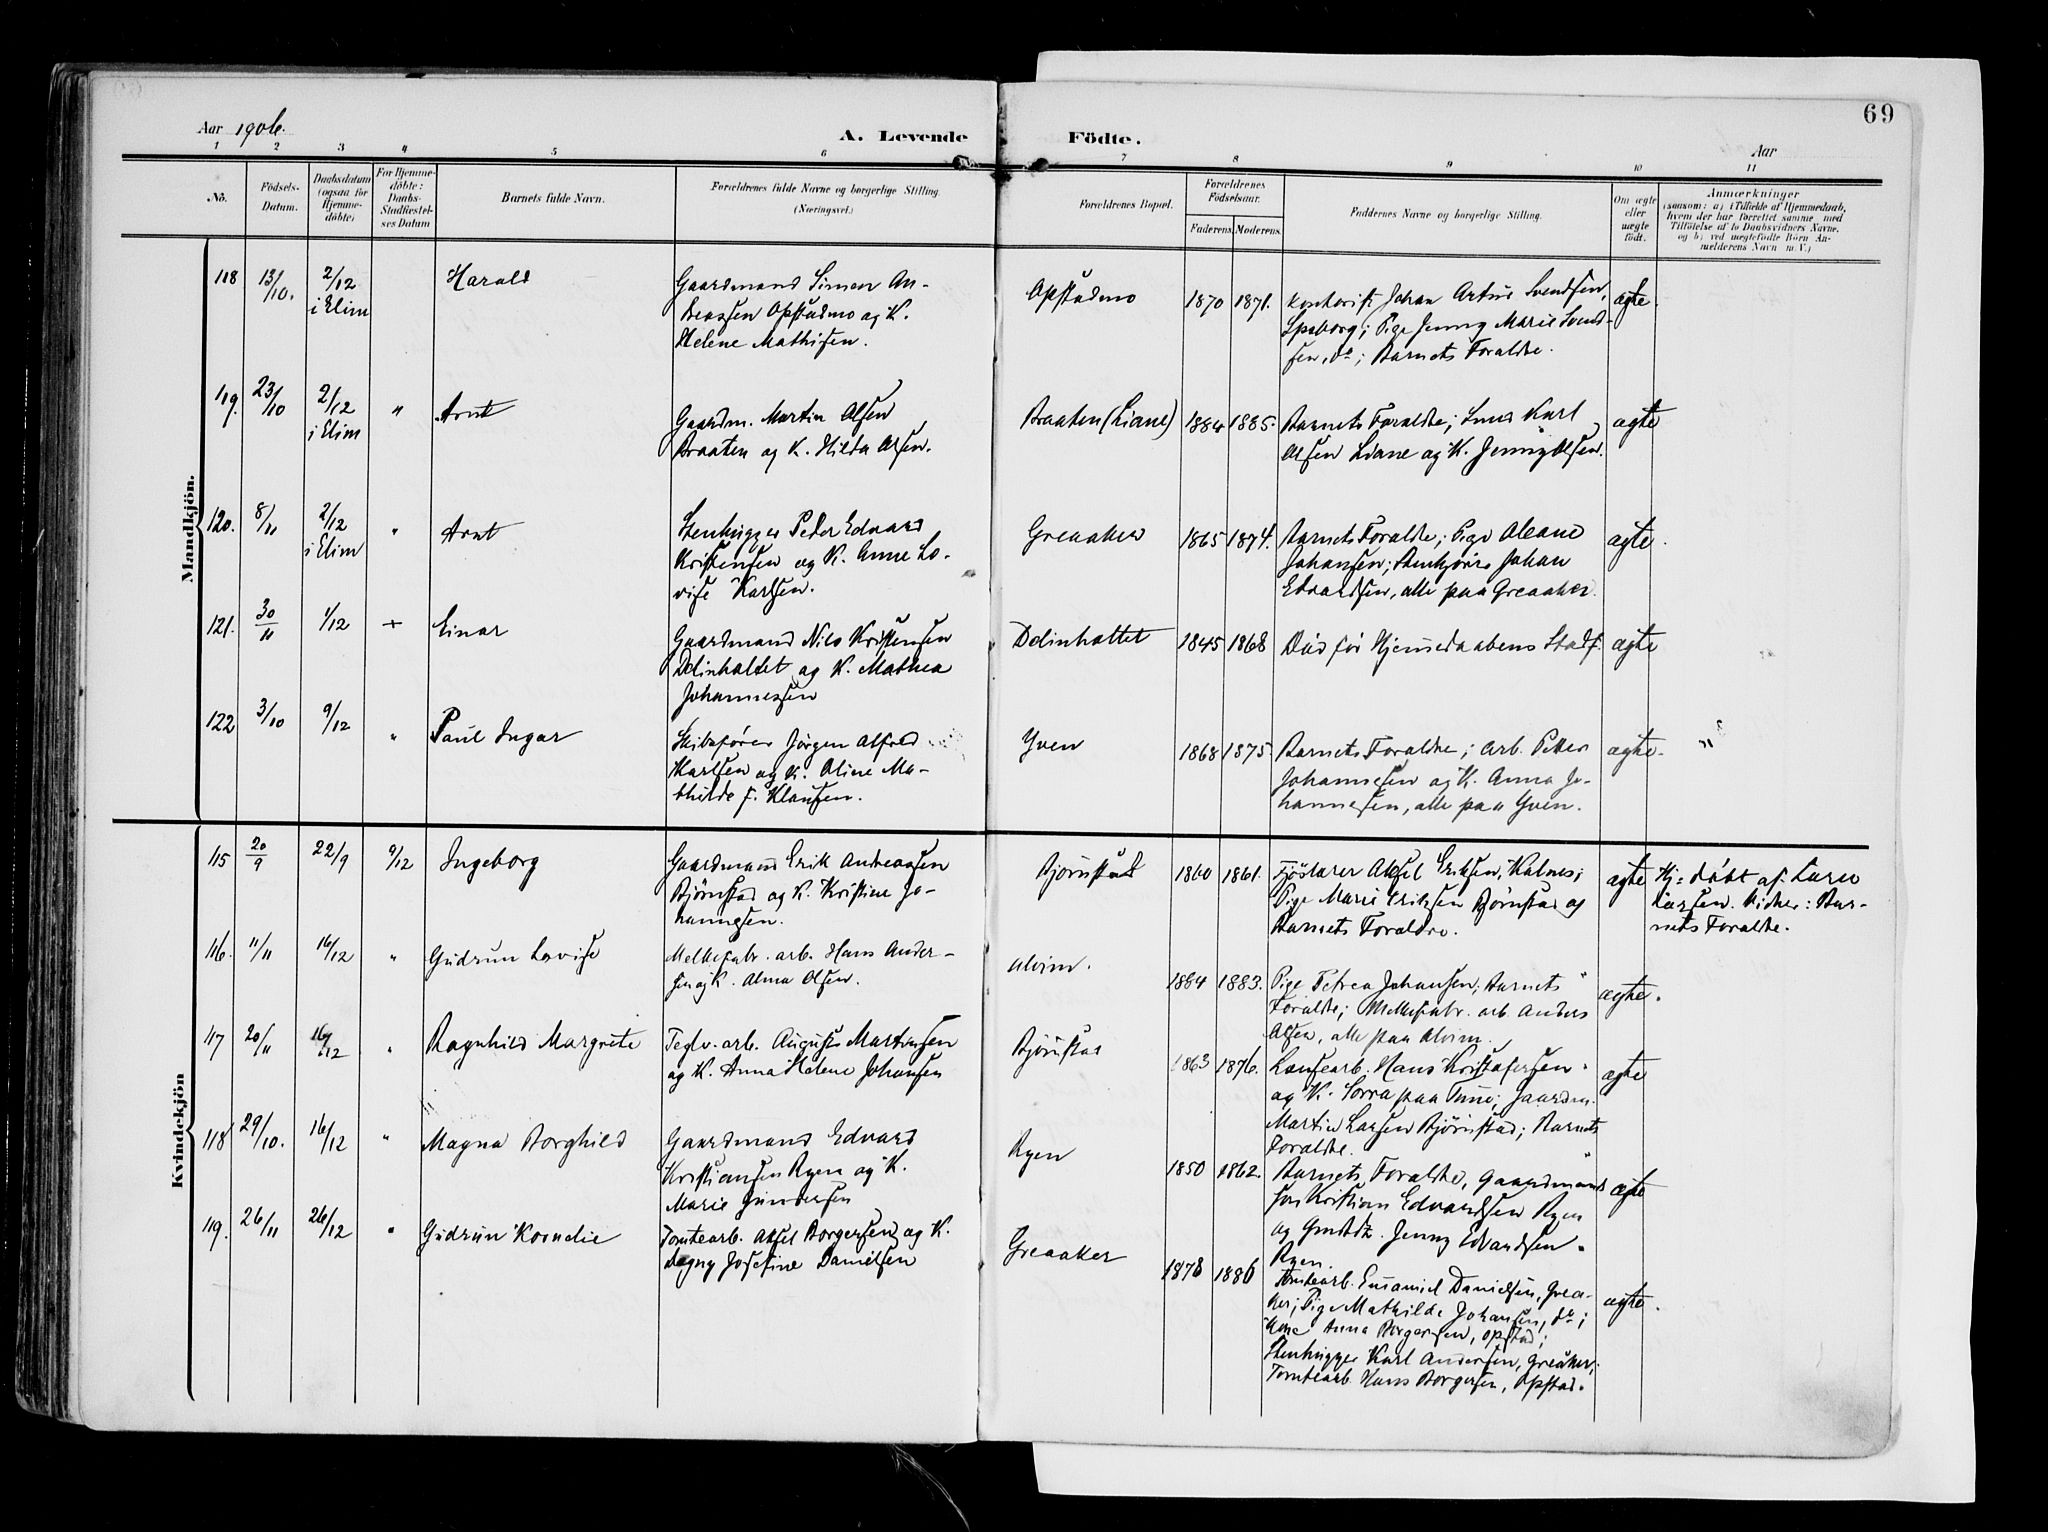 69
Aar 1906.
A. Levende Födte.
Aar
1 2 3 4 5 6 7 8 9 10 11
No.
Födsels-
Datum.
Daabsdatum
(ogsaa for
Hjemme-
döbte)
For Hjemme-
döbte:
Daabs-
Stadfæstel-
ses Datum
Barnets fulde Navn.
Forældrenes fulde Navne og borgerlige Stilling.
(Næringsvei.)
Forældrenes Bopæl.
Forældrenes
Födselsaar.
Faderens. Moderens.
Faddernes Navne og borgerlige Stilling.
Om ægte
eller
uægte
födt.
Anmærkninger
(saasom: a) i Tilfælde af Hjemmedaab,
hvem der har forrettet samme, med
Tilföielse af to Daabsvidners Navne,
og b) ved uægtefödte Börn An-
melderens Navn m. V.)
Mandkjön.
118 13/10. 2/12
i Elim
Harald
Gaardmand Simen An-
dreassen Opstadmo og K.
Helene Mathisen.
Opstadmo
1870 1871.
Kontorist Johan Artur Svendsen,
Spsborg; Pige Jenny Marie Svend-
sen, do; Barnets Foraldre.
ægte.
119. 23/10 2/12
i Elim
" Arnt
Gaardm. Martin Olsen
Braaten og K. Hilda Olsen.
Braaten (Liane)
1884 1885.
Barnets Foraldre; Smed Karl
Olsen Liane og K. Jenny Olsen.
ægte
120. 8/11 2/12
i Elim
" Arnt
Stenhugger Peder Edvard
Kristensen og K. Anne Lo-
vise Karlsen.
Greaaker
1865 1874.
Barnets Foraldre; Pige Oleane
Johansen; Stenkjörer Johan
Edvardsen, alle paa Greaaker.
ægte.
121. 30/11 1/12 + Einar
Gaardmand Nils Kristensen
Delinholtet og K. Mathea
Johannessen
Delinholtet
1845 1868
Död för Hjemmedaabens Stadf.
ægte
122 3/10 9/12 " Paul Ingar
Skibsförer Jörgen Alfred
Karlsen og K. Oline Ma-
thilde f. Klausen.
Yven
1868 1875.
Barnets Foraldre; Arb. Petter
Johannesen og K. Anna Jo-
hannesen, alle paa Yven.
ægte. "
Kvindekjön
115 20/9 22/9 9/12 Ingeborg
Gaardmand Erik Andreassen
Björnstad og K. Kristine Jo-
hannesen.
Björnstad
1860 1861.
Fjöslærer Aksel Eriksen, Kalnes;
Pige Marie Eriksen Björnstad og
Barnets Foraldre.
ægte
Hj=döbt af Lærer
Larsen. Vidner: Bar-
nets Foraldre.
116. 11/11 16/12 " Gudrun Lovise
Melkefabr. arb. Hans Ander-
sen og K. Alma Olsen.
Alvim.
1884 1883.
Pige Petrea Johansen; Barnets
Foraldre; Melkefabr. arb. Anders
Olsen, alle paa Alvim.
ægte.
117 20/11 16/12 " Ragnhild Margrete
Teglv. arb. August Martinsen
og K. Anna Helene Johansen
Björnstad
1863 1876.
Löusearb. Hans Kristofersen
og K. Sorra paa Tune; Gaardm.
Martin Larsen Björnstad; Barnets
Foraldre.
ægte
118 29/10. 16/12 " Magna Borghild
Gaardmand Edvard
Kristiansen Ryen og K.
Marie Gundersen
Ryen
1850 1862.
Barnets Foraldre, Gaardmands
søn Kristian Edvardsen Ryen
og Gmdtr. Jenny Edvardsen
Ryen.
ægte
119. 26/11 26/12 " Gudrun Kornelie
Tomtearb. Aksel Borgersen og K.
Dagny Josefine Danielsen
Greaaker
1878 1886
Tomtearb. Emanuel Danielsen, Grea-
ker; Pige Mathilde Johansen, do;
Kone Anna Borgersen, Opstad;
Stenhugger Karl Andersen, Greaker;
Tomtearb. Hans Borgersen, Opstad.
ægte.